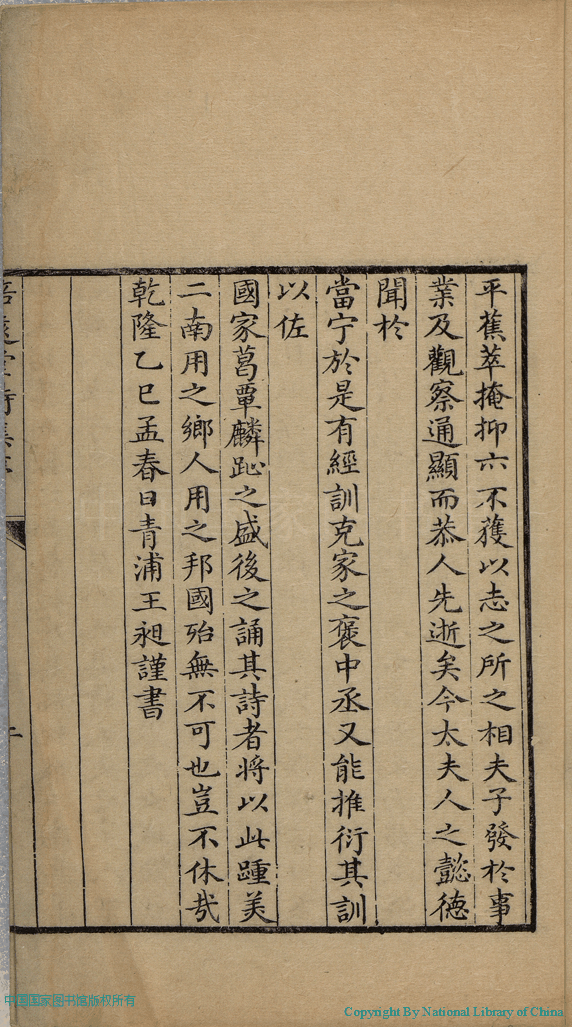 平蕉萃掩抑六不獲以志之所之相夫子發於事
業及觀察通顯而恭人先逝矣今太夫人之懿德
聞於
當宁於是有經訓克家之褒中丞又能推衍其訓
以佐
國家葛覃麟趾之盛後之誦其詩者將以此踵美
二南用之鄉人用之邦國殆無不可也豈不休哉
乾隆乙巳孟春日青浦王昶謹書
中国国家图书馆版权所有
Copyright By National Library of China